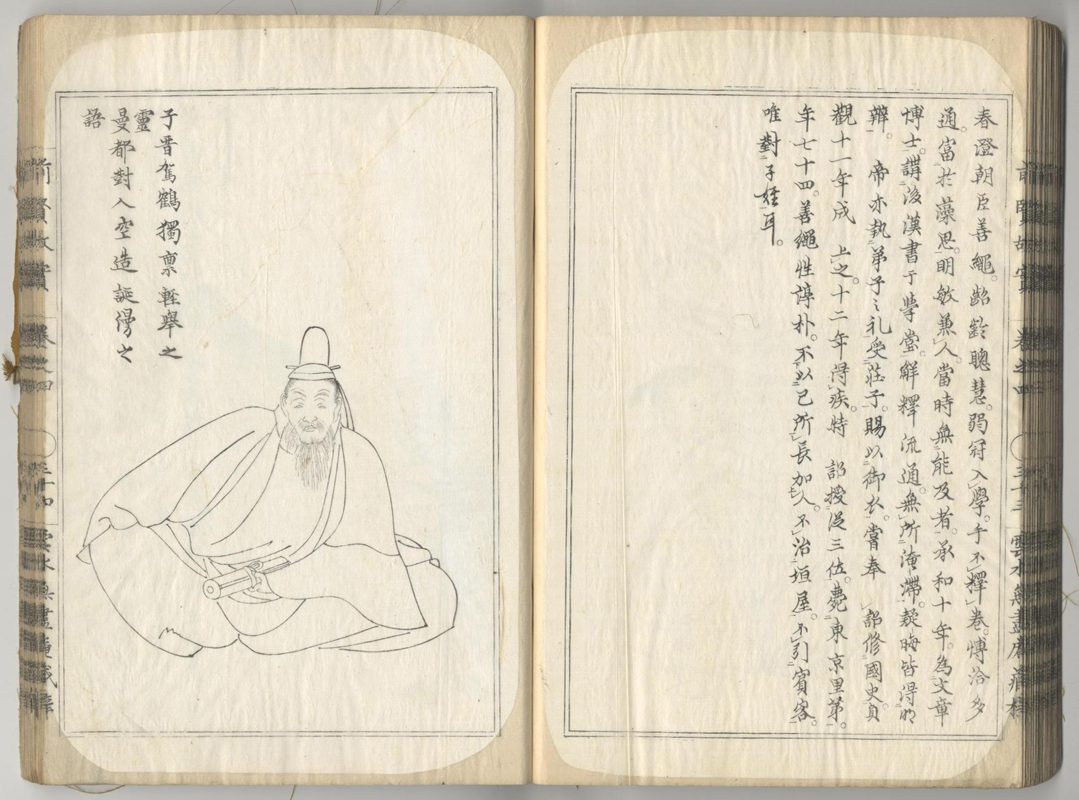 春澄朝臣善繩。齠齡聰慧。弱冠入學。手不釋卷。博洽多
通。富於藻思。明敏兼人。當時無能及者。承和十年。為文章
博士。講後漢書于學堂。解釋流通。無所淹滯。疑晦皆得明
辨。 帝亦執弟子之礼受莊子。賜以御衣。嘗奉 詔修國史。貞
觀十一年成 上之。十二年得疾。特 詔授從三位。薨東京里第。
年七十四。善繩性諄朴。不以己所長加人。不治垣屋。不引賓客。
唯對子姪耳。
子晋駕鶴獨禀軽舉之
靈
曼都對入空造誕漫之
語
前賢故實 卷之四 三十四